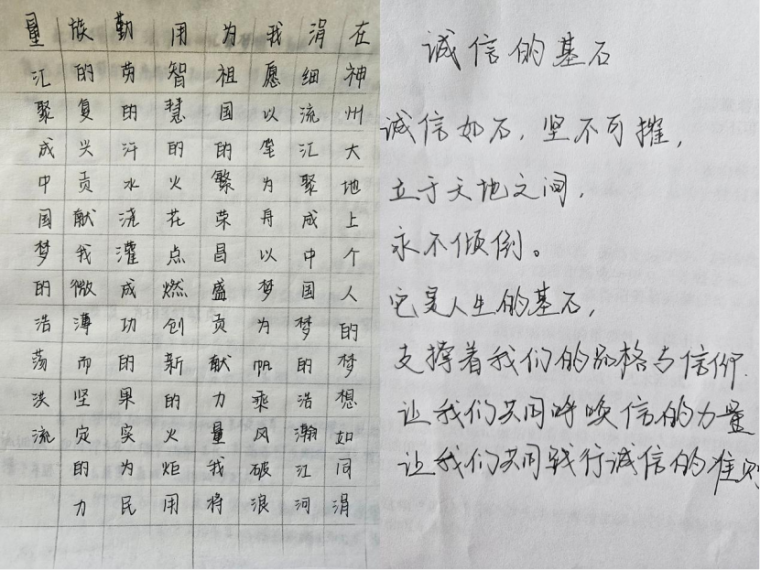 在神州大地上个人的梦想如同涓
涓细流汇聚成中国梦的浩瀚江河
我愿以笔为舟以梦为帆乘风破浪
为祖国的繁荣昌盛贡献力量我将
用智慧的火花点燃创新的火炬用
勤劳的汗水浇灌成功的果实为民
族的复兴贡献我微薄而坚定的力
量汇聚成中国梦的浩荡洪流
诚信的基石
诚信如石，坚不可摧，
立于天地之间，
永不倾倒。
它是人生的基石，
支撑着我们的品格与信仰.
让我们共同呼唤信的力量
让我们共同践行诚信的准则